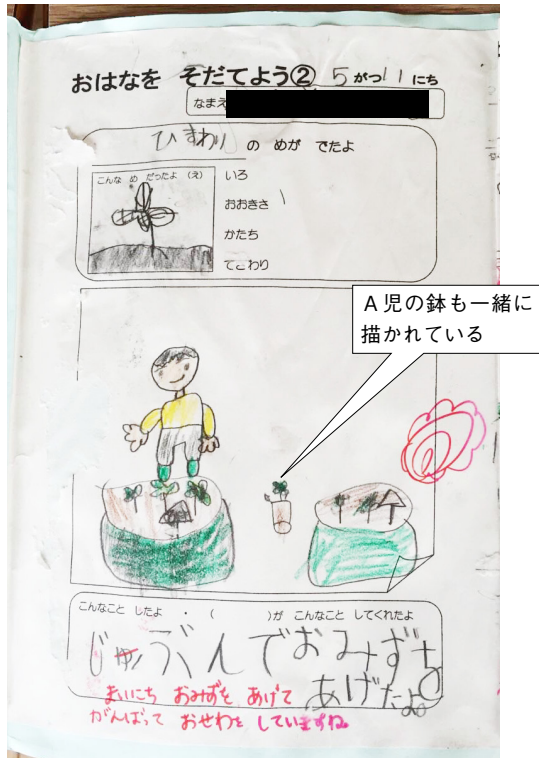 おはなを そだてよう② 5がつ11にち
なまえ
ひまわり の めが でたよ
こんな め だったよ (え)
いろ
おおきさ
かたち
てざわり
A児の鉢も一緒に
描かれている
こんなこと したよ ・ ( )が こんなこと してくれたよ
じゅうぶんでおみずを
あげたよ
まいにち おみずを あげて
がんばって おせわを していますね。